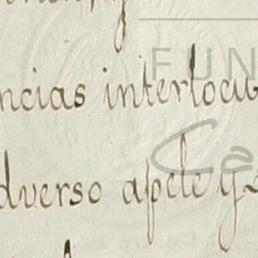 ncias interlocu
dverso apele y s